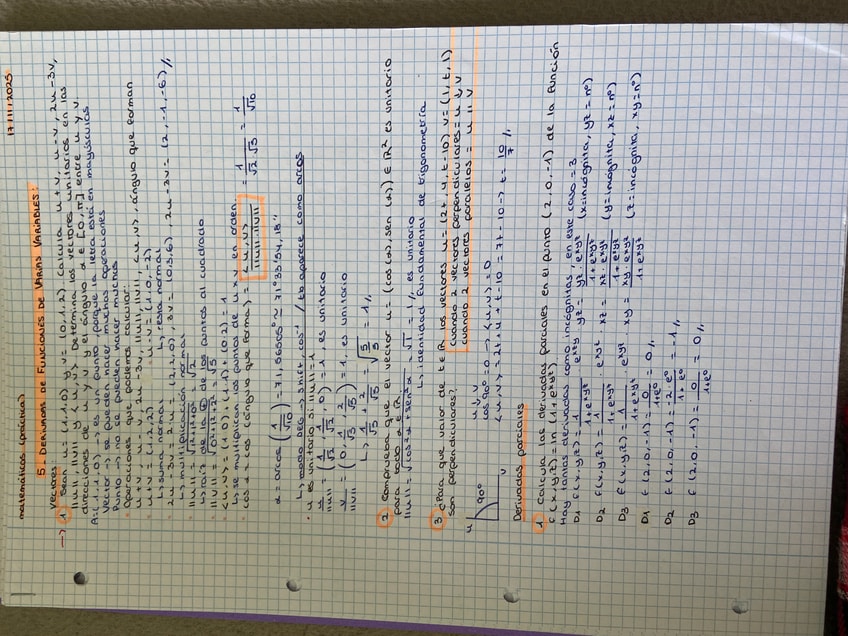 matemáticas (práctica) 17/11/2025
5. DERIVADAS DE FUNCIONES DE VARIAS VARIABLES:
vectores
→ 1 Sean u = (1,1,0) y v = (0,1,2). Calcula u+v, u-v, 2u-3v,
||u||, ||v|| y <u,v>. Determina los vectores unitarios en las
direcciones de u y v y el ángulo α ∈ [0,π] entre u y v.
A=(1,1,0) → es un punto, porque la letra está en mayúsculas
vector → se pueden hacer muchas operaciones
Punto → no se pueden hacer muchas
· Operaciones que podemos calcular:
u+v, u-v, 2u-3v, ||u||, ||v||, <u,v>, ángulo que forman
· u+v = (1,2,2) u-v = (1,0,-2)
↳ suma normal ↳ resta normal
· 2u-3v = 2u = (2,2,0), 3v = (0,3,6), 2u-3v = (2,-1,-6) //
↳ multiplicación normal
· ||u|| = √1²+1²+0² = √2
↳ raíz de la ⊕ de los puntos al cuadrado
· ||v|| = √0²+1²+2² = √5
· <u,v> = (1·0)+(1·1)+(0·2) = 1
↳ se multiplican los puntos de u x v en orden.
· cos α = cos (ángulo que forma) = <u,v> / ||u||·||v|| = 1 / √2 √5 = 1 / √10
α = arcos (1/√10) = 71,56505° ≈ 71° 33' 54,18''
↳ modo DEG → shift, cos⁻¹ / tb aparece como arcos
· u es unitario si ||u|| = 1
u/||u|| = (1/√2, 1/√2, 0) = 1, es unitario
v/||v|| = (0, 1/√5, 2/√5) = 1, es unitario
2 Comprueba que el vector u = (cos(α), sen(α)) ∈ R² es unitario
para todo α ∈ R.
||u|| = √cos²α + sen²α = √1 = 1 // es unitario
↳ identidad fundamental de trigonometría
3 ¿Para que valor de t ∈ R los vectores u = (2t, 4, t-10), v = (1, t, 1)
son perpendiculares? cuando 2 vectores perpendiculares = u ⊥ v
cuando 2 vectores paralelos = u || v
u 90° v
u ⊥ v
cos 90° = 0 → <u,v> = 0
<u,v> = 2t + 4t + t - 10 = 7t - 10 → t = 10/7 //
Derivadas parciales
1 Calcula las derivadas parciales en el punto (2,0,-1) de la función
f(x,y,z) = ln(1+e^xyz)
Hay tantas derivadas como incógnitas, en este caso = 3
D1 f(x,y,z) = 1/1+e^xyz · e^xyz · yz = yz·e^xyz / 1+e^xyz (x=incógnita, yz=nº)
D2 f(x,y,z) = 1/1+e^xyz · e^xyz · xz = xz·e^xyz / 1+e^xyz (y=incógnita, xz=nº)
D3 f(x,y,z) = 1/1+e^xyz · e^xyz · xy = xy·e^xyz / 1+e^xyz (z=incógnita, xy=nº)
D1 f(2,0,-1) = 0/1+e⁰ = 0 //
D2 f(2,0,-1) = -2·e⁰/1+e⁰ = -1 //
D3 f(2,0,-1) = 0/1+e⁰ = 0 //